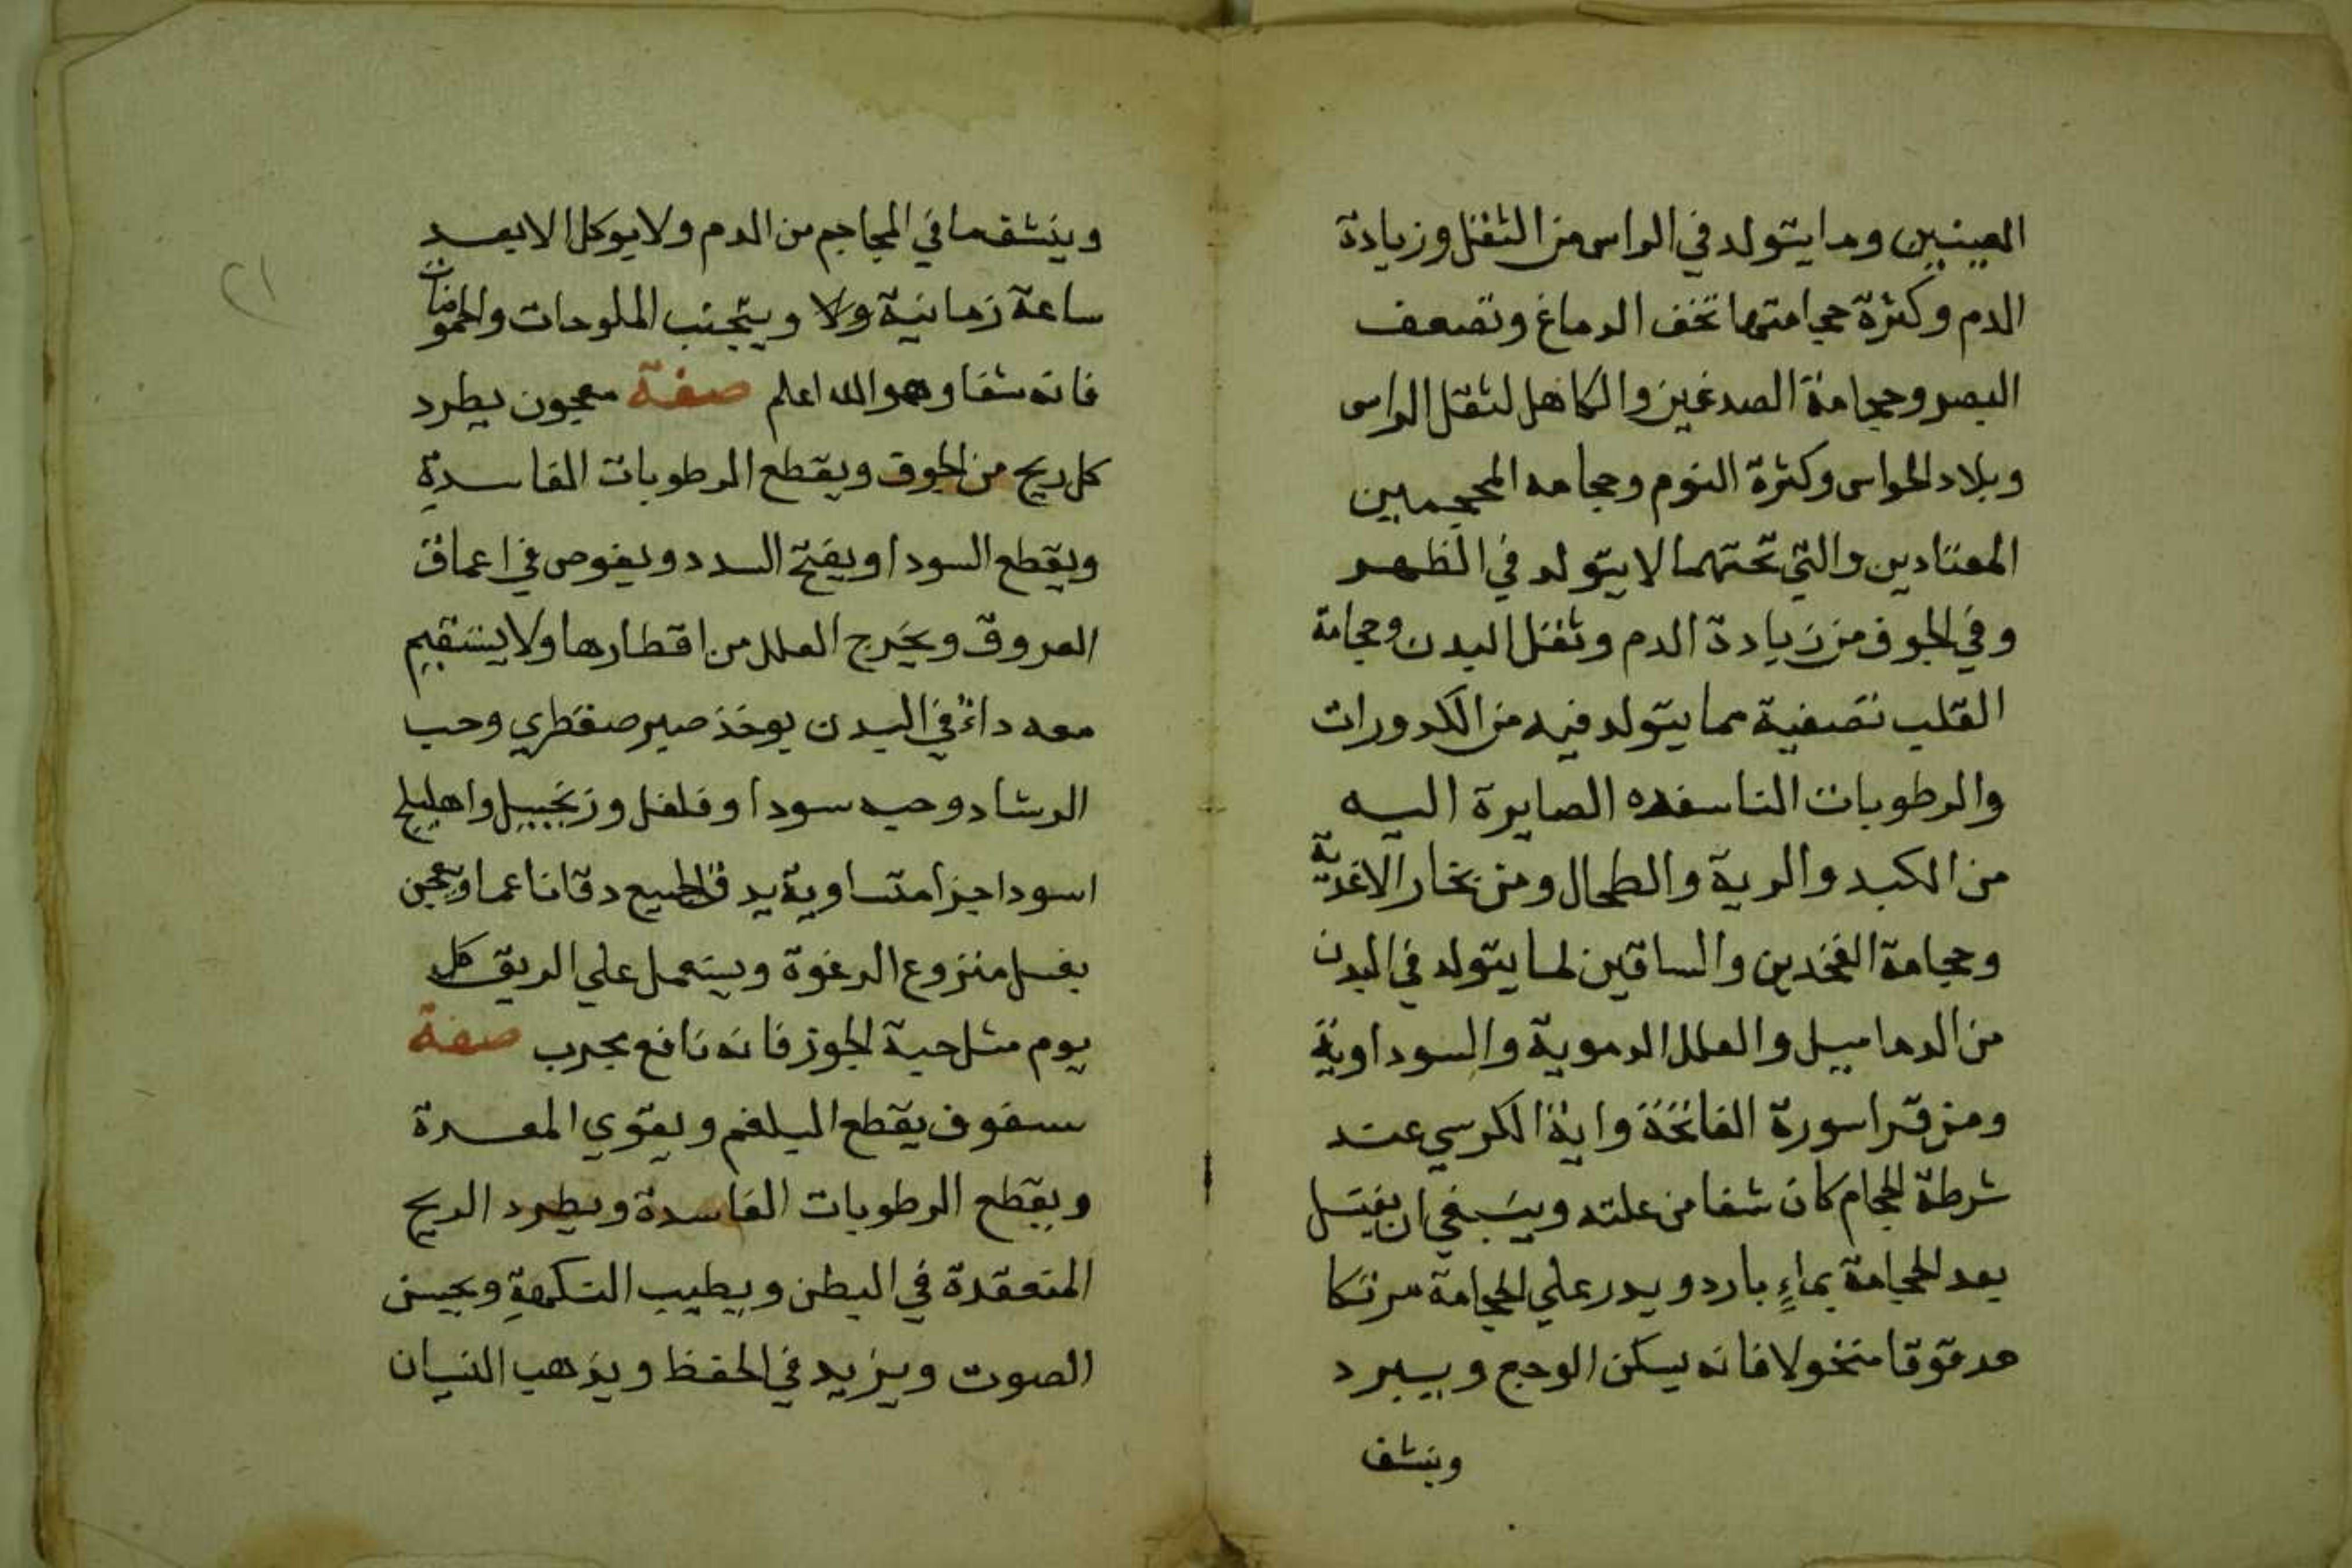 العينين وما يتولد في الراس من الثقل وزيادة
الدم وكثرة حجامتها تخف الدماغ وتضعف
البصر وحجامة الصدغين والكاهل لثقل الراس
وبلاد الحواس وكثرة النوم وحجامه المحجمين
المعتادين والتي تحتهما لا يتولد في الظهر
وفي الجوف من زيادة الدم وثقل البدن وحجامة
القلب تصفية مما يتولد فيه من الكدورات
والرطوبات الصايرة اليه
من الكبد والرية والطحال ومن بخار الاغذية
وحجامة الفخدين والساقين لما يتولد في البدن
من الدماميل والعلل الدموية والسوداوية
ومن قرا سورة الفاتحة واية الكرسي عند
شرطة الحجام كان شفا من علته وينبغي ان يغتسل
بعد الحجامة بماءٍ بارد ويدر علي الحجامة مرتكا
مدقوقا منخولا فانه يسكن الوجع ويبرد
وينشف
وينشف ما في المحاجم من الدم ولا يوكل الا بعد
ساعة زمانية ولا ويتجنب الملوحات والحموضات
فانه شفا وهو الله اعلم صفة معجون يطرد
كل ريح من الجوف ويقطع الرطوبات الفاسدة
ويقطع السودا ويفتح السدد ويغوص في اعماق
العروق ويخرج العلل من اقطارها ولا يستقيم
معه داءٌ في البدن يوخذ صبر صقطري وحب
الرشاد وحبه سودا وفلفل وزنجبيل واهليلج
اسود اجزا متساوية يدق الجميع دقا ناعما ويعجن
بعسل منزوع الرغوة ويستعمل علي الريق كل
يوم مثل حبة الجوز فانه نافع مجرب صفة
سفوف يقطع البلغم ويقوي المعدة
ويقطع الرطوبات الفاسدة ويطرد الريح
المنعقدة في البطن ويطيب النكهة ويحسن
الصوت ويزيد في الحفظ ويذهب النسيان
٢١